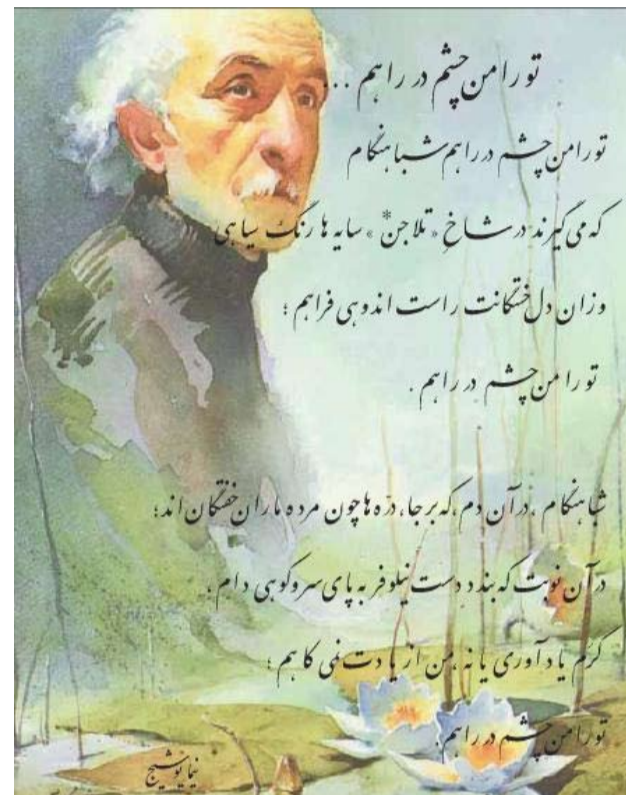 تو را من چشم در راهم ...
تو را من چشم در راهم شباهنگام
که می گیرند در شاخ « تلاجن* » سایه ها رنگ سیاهی
وزان دل خستگانت راست اندوهی فراهم ؛
تو را من چشم در راهم .
شباهنگام ، در آن دم ، که بر جا ، دره ها چون مرده ماران خفتگان اند ؛
در آن نوبت که بندد دست نیلوفر به پای سرو کوهی دام ،
گرم یاد آوری یا نه ، من از یادت نمی کاهم ؛
تو را من چشم در راهم .
نیما یوشیج